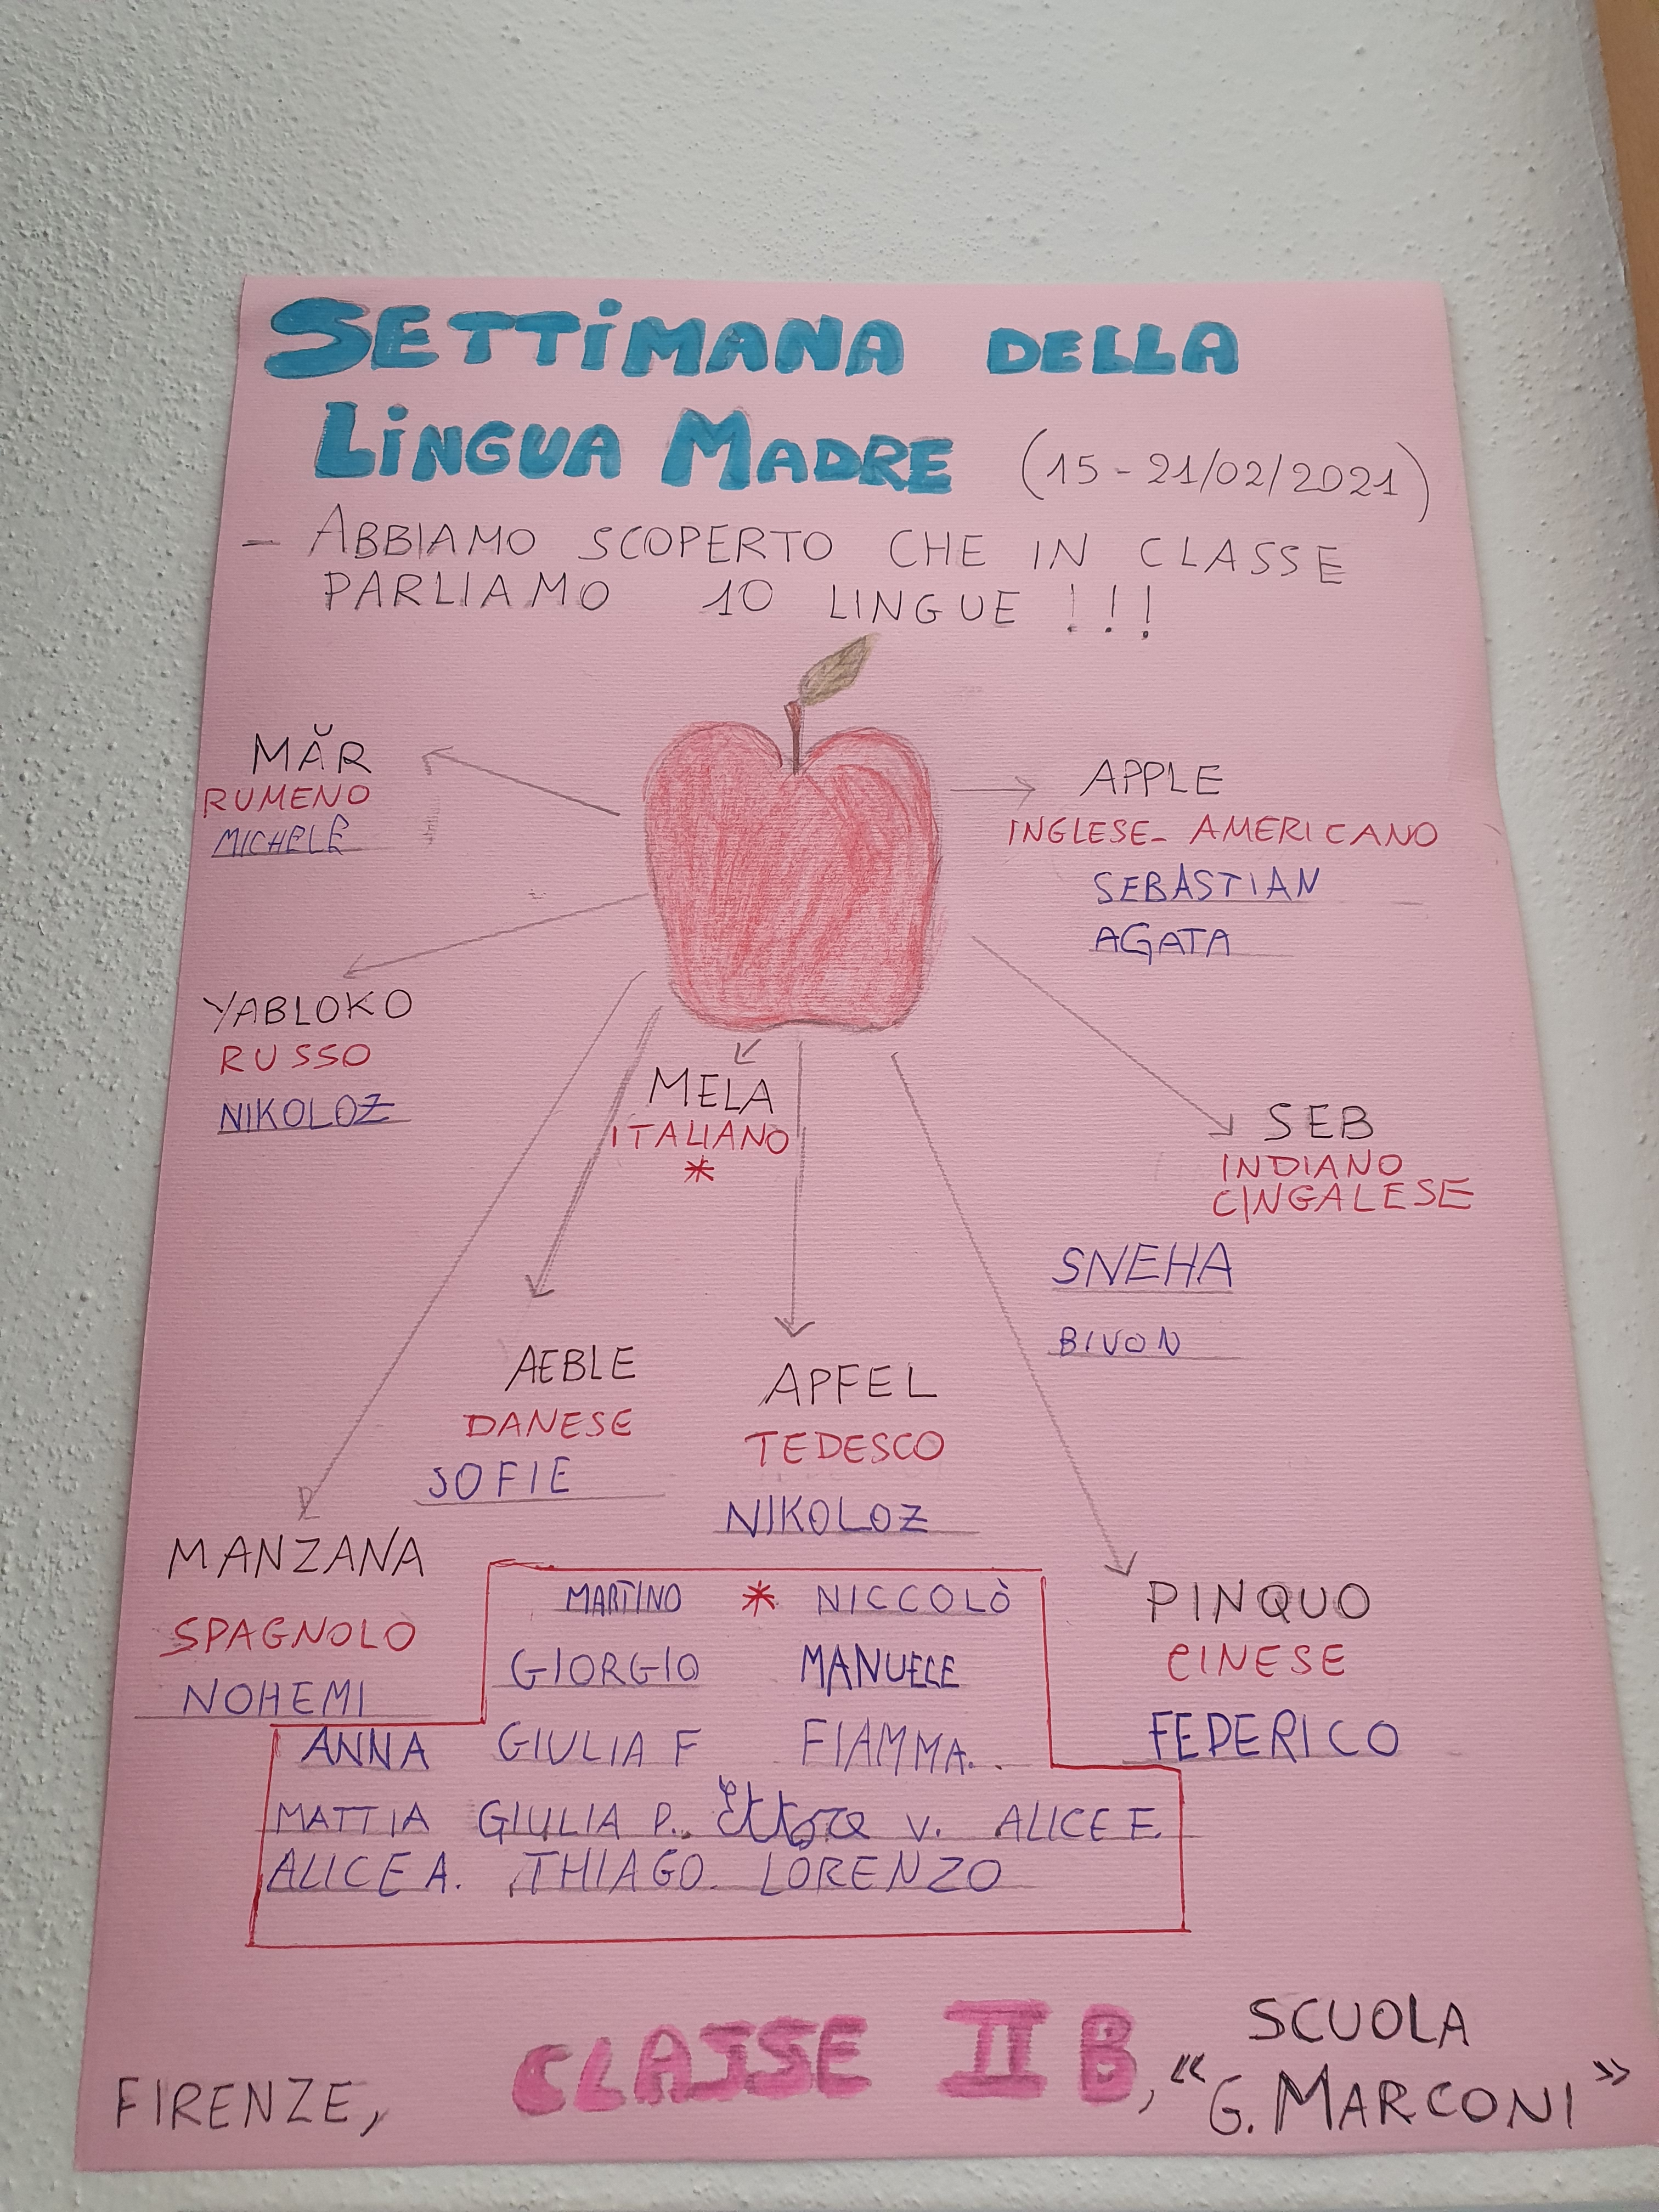 SETTiMANA DELLA
LiNGUA MADRE (15-21/02/2021)
- ABBIAMO SCOPERTO CHE IN CLASSE
PARLIAMO 10 LINGUE !!!
MĂR
RUMENO
MICHELE
APPLE
INGLESE- AMERICANO
SEBASTIAN
AGATA
YABLOKO
RUSSO
NIKOLOZ
MELA
ITALIANO
*
SEB
INDIANO
CINGALESE
SNEHA
BIVON
AEBLE
DANESE
SOFIE
APFEL
TEDESCO
NIKOLOZ
MANZANA
SPAGNOLO
NOHEMI
PINQUO
CINESE
FEDERICO
MARTINO * NICCOLÒ
GIORGIO MANUELE
ANNA GIULIA F FIAMMA..
MATTIA GIULIA P.. Ettore V. ALICE E.
ALICE A. THIAGO. LORENZO
FIRENZE, CLASSE II B, SCUOLA
"G. MARCONI"